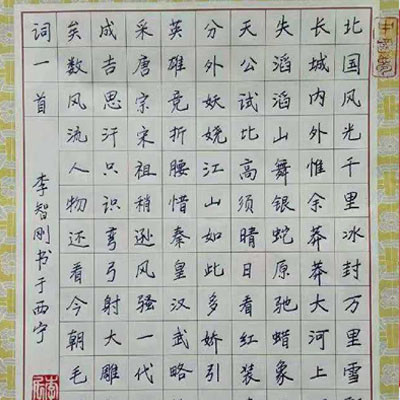 北国风光千里冰封万里雪
长城内外惟余莽莽大河上
失滔滔山舞银蛇原驰蜡象
天公试比高须晴日看红装
分外妖娆江山如此多娇引
英雄竞折腰惜秦皇汉武略
采唐宗宋祖稍逊风骚一代
成吉思汗只识弯弓射大雕
矣数风流人物还看今朝毛
词一首
李智刚书于西宁